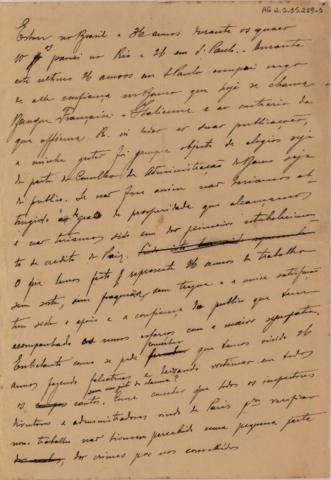 AG 2.2.35.289-3
Estive no Brasil a 36 annos durante os quaes
10 passei no Rio e 26 em S. Paulo. Durante
este ultimo 26 annos em S Paulo occupei cargo
de alta confiança no Banco que hoje se chama
Banque Française e Italienne e ao contrario do
que affirma R. vi nas suas publicações,
a minha gestão foi sempre objecto de elogios seja
da parte do Conselho de Administração do Banco seja
do publico. Se não fosse assim não teriamos at-
tingido o grau de prosperidade que alcançamos
e não teriamos sido um dos primeiros estabelecimen-
tos de credito do Paiz.
O que temos feito representa 26 annos de trabalho
sem sorte, sem fraquezas, sem tregua e a unica satisfação
tem sido o apoio e a confiança do publico que tem
acompanhado os nossos esforços com a maior sympathia.
Entretanto como se pode conceber que temos vivido 26
annos fazendo falcatruas e deixando vestigios em todos
os cantos. Como conceber que todos os inspectores
directores e administradores vindo de Paris p. verificar
nosso trabalho não tivessem percebido uma pequena parte
dos crimes por nós commettidos